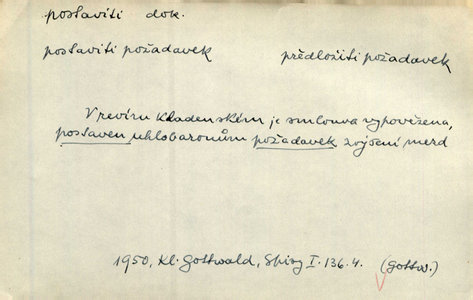 postaviti dok.
postaviti požadavek předložiti požadavek
V revíru kladenském je smlouva vypovězena,
postaven uhlobaronům požadavek zvýšení mezd
1950, Kl. Gottwald, Spisy I. 136.4. (Gottw.)